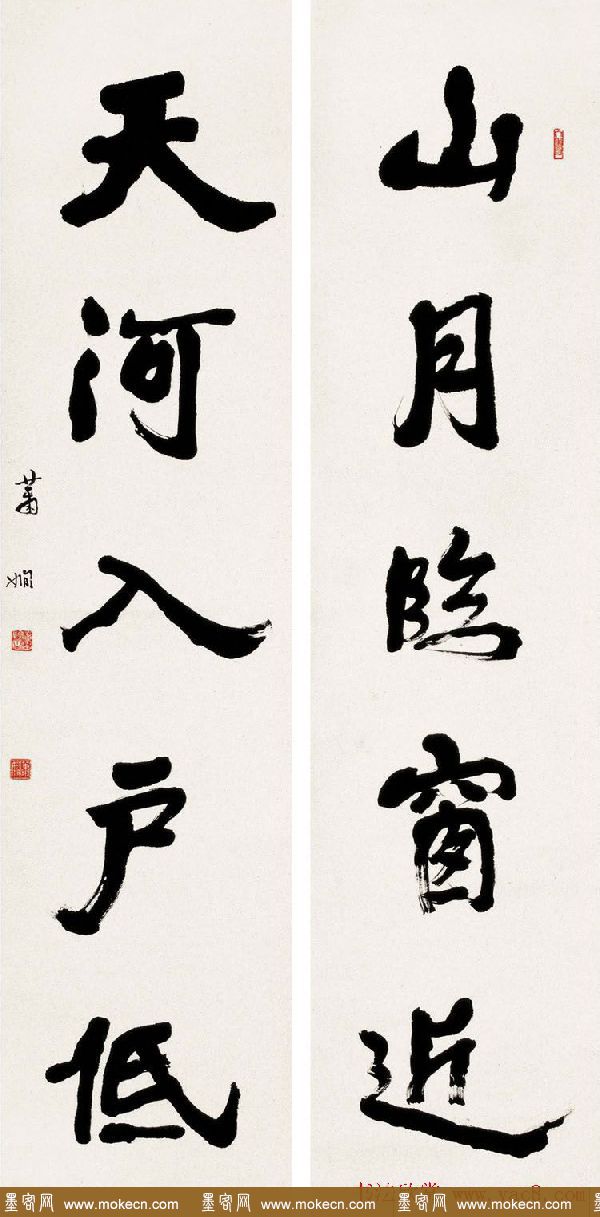 山月臨窗近
天河入户低
蕭嫻
书法欣赏 www.yac8.com
墨客网 www.mokecn.com 墨客网 www.mokecn.com 墨客网 www.mokecn.com